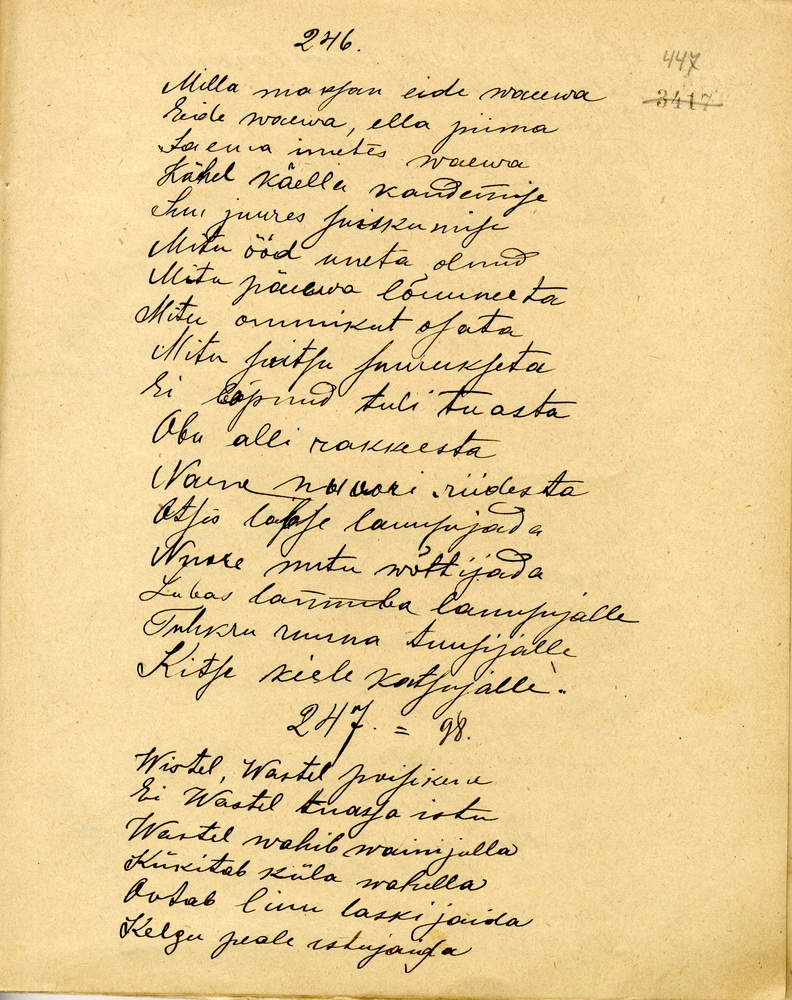 246.
447
3417
Milla maksan eide waewa
Eide waewa, ella piima
Saema imetes waewa
Kähel käella kandemise
Suu juures suiskumise
Mitu ööd uneta olnud
Mitu päewa lõuuneeta
Mitu ommikut osata
Mitu suitsu suurukseta
Ei lõpnud tuli tuasta
Obu alli rakkeesta
Naene nuoori riidesta
Otsis lapse lausujada
Nuore mitu wõttijada
Lubas lamba lausujalle
Tuhkru ruuna tuusijalle
Kitse kiele katsujalle.
247. = 98.
Wistel, Wastel poisikene
Ei Wastel tuassa istu
Wastel wahib wainijulla
Kükitab küla wahella
Ootab linu laskijaida
Kelgu peale istujaida